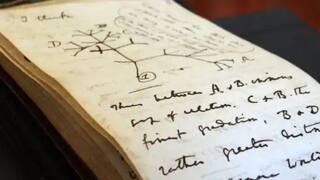 I think
D
A
1
Thus between A & B. immense
gap of relation. C & B. the
finest gradation, B & D
rather greater distinction